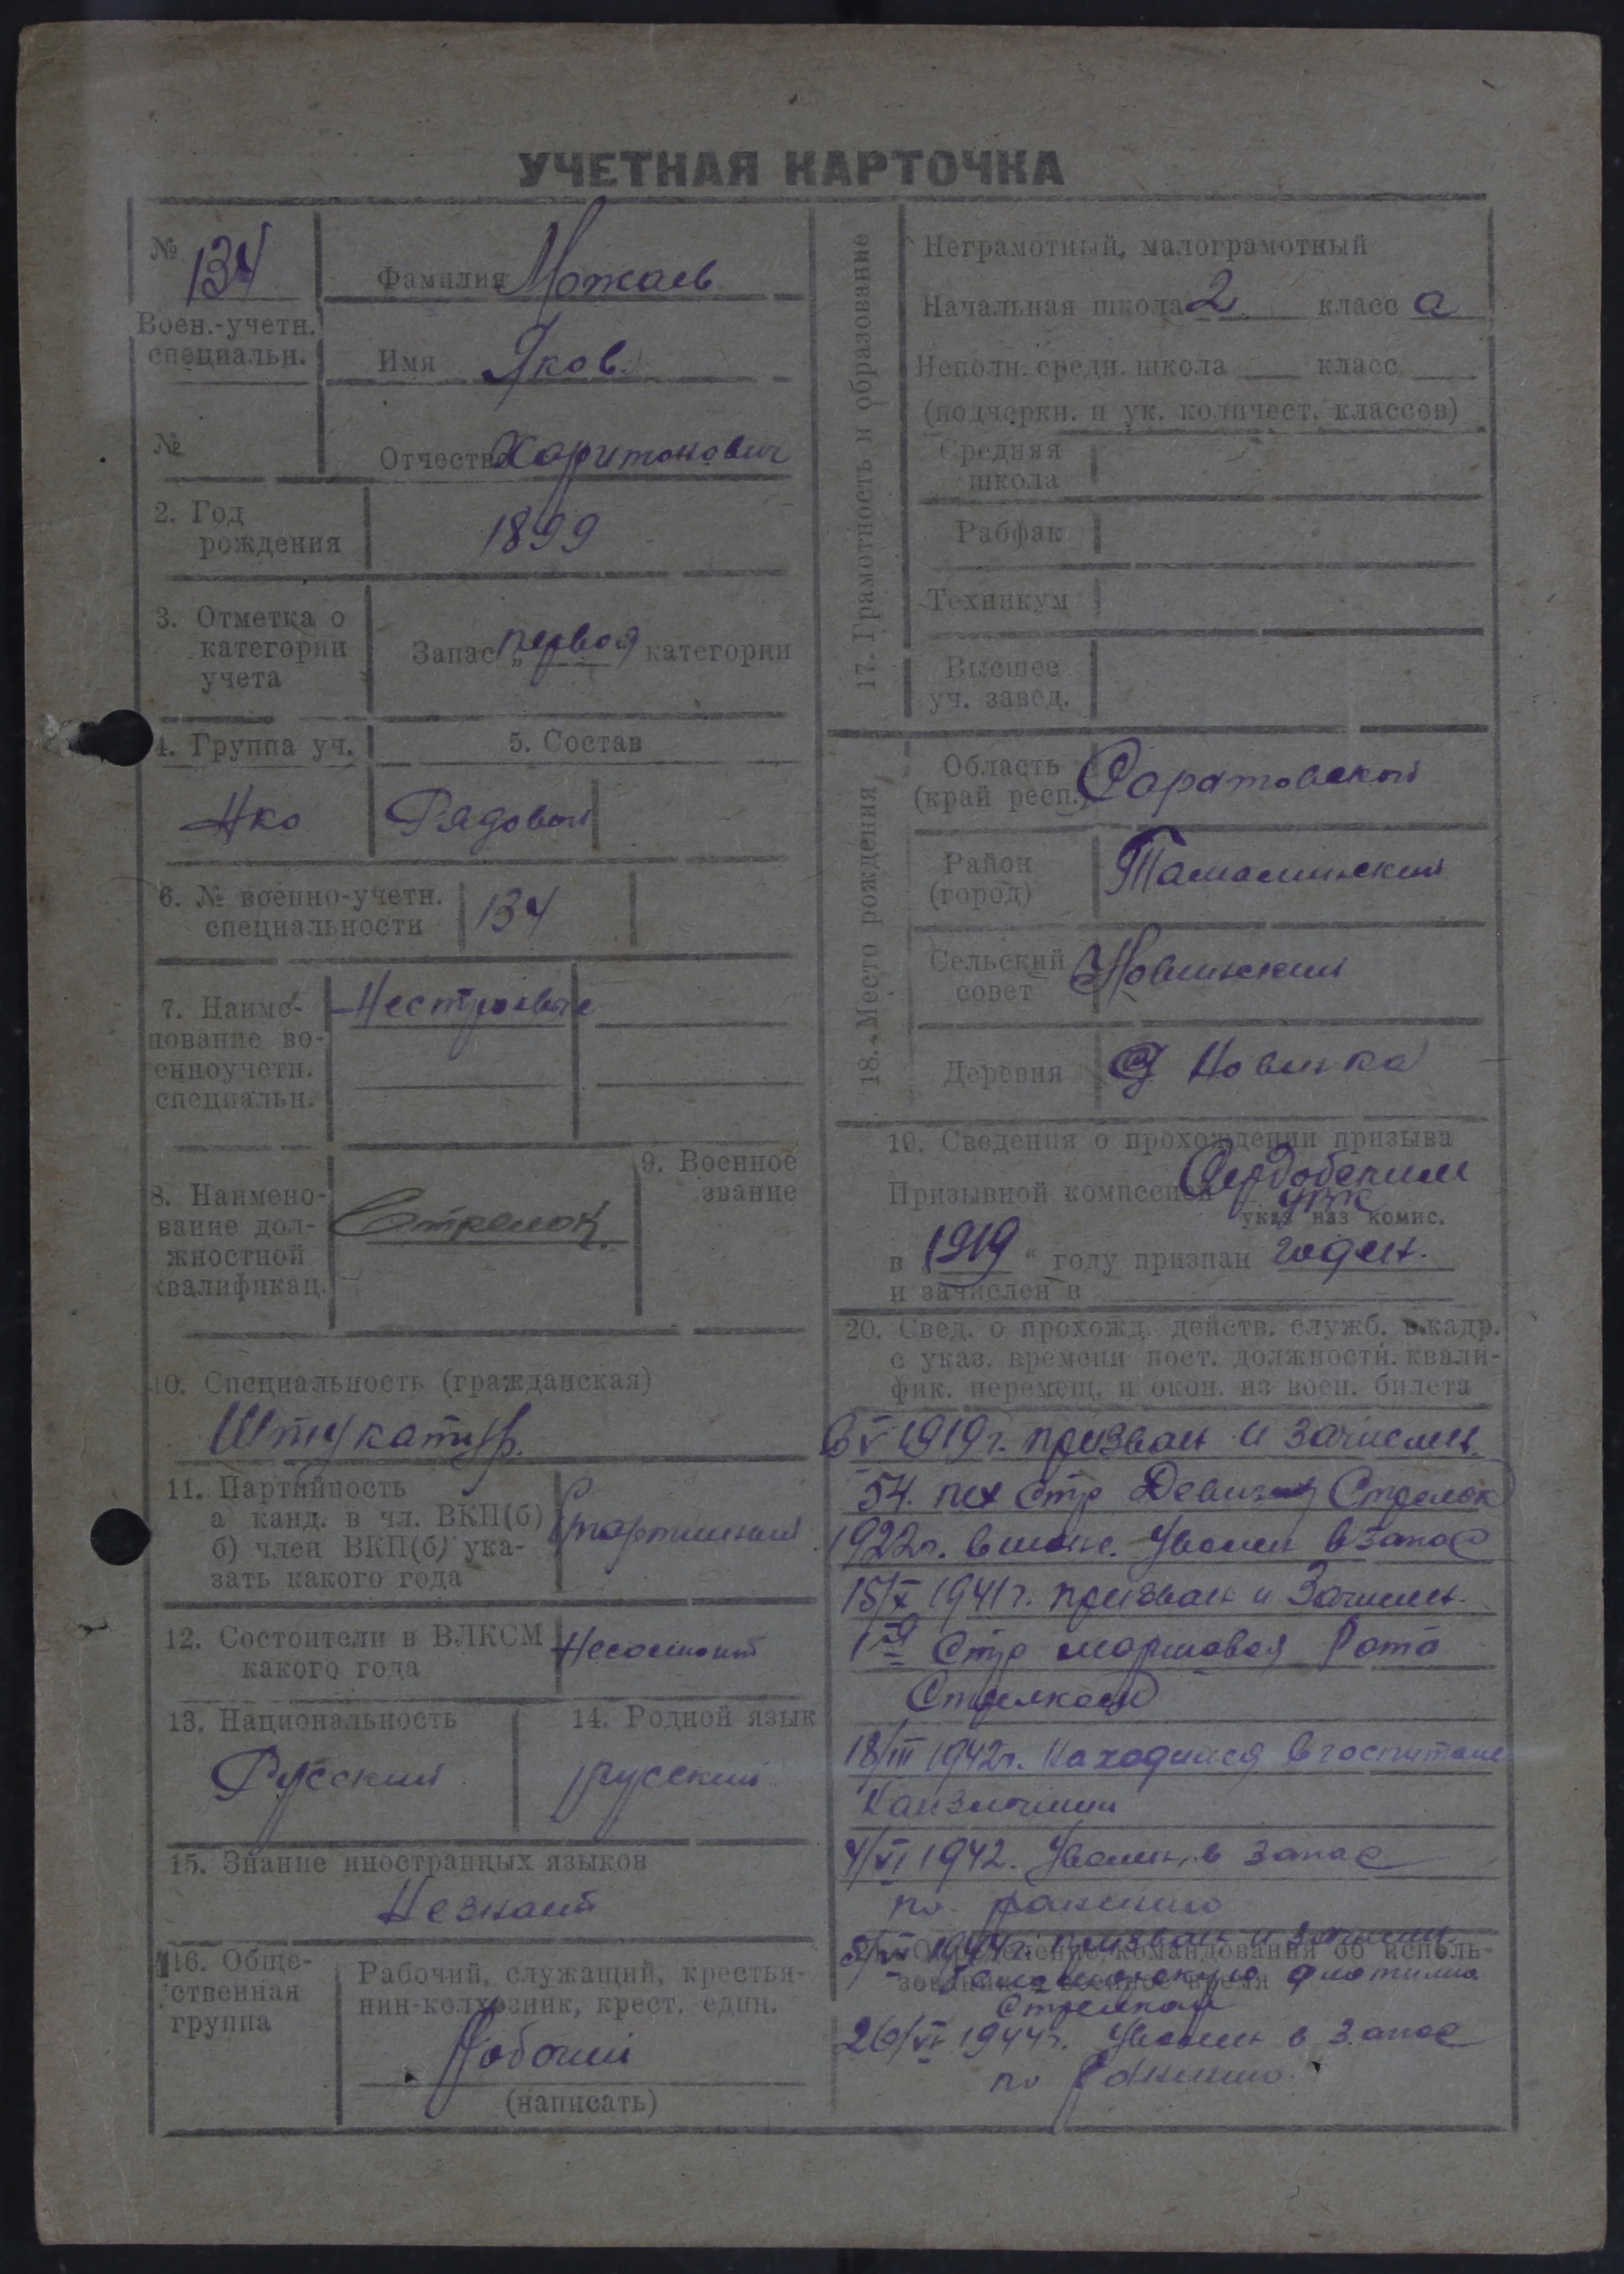 УЧЕТНАЯ КАРТОЧКА
№ 134
Воен.-учетн.
специальн.
№
Фамилия Можаев
Имя Яков.
Отчество Харитонович
2. Год
рождения
1899
3. Отметка о
категории
учета
Запас "первоя категории
4. Группа уч.
Нко
5. Состав
Рядовой
6. № военно-учетн.
специальности
134
7. Наиме-
нование во-
енноучетн.
специальн.
Нестроевые
8. Наимено-
вание дол-
жностной
квалификац.
Стрелок
9. Военное
звание
10. Специальность (гражданская)
Штукатур.
11. Партийность
а канд. в чл. ВКП(б)
б) член ВКП(б) ука-
зать какого года
12. Состоител и в ВЛКСМ
какого года
Несостоит
13. Национальность
Русский
14. Родной язык
русский
15. Знание иностранных языков
Незнает
16. Обще-
ственная
группа
Рабочий, служащий, крестья-
нин-колхозник, крест. един.
Рабочий
(написать)
17. Грамотность и образование
Неграмотный, малограмотный
Начальная школа 2 класс а
Неполн. средн. школа класс
(подчеркн. и ук. количест. классов)
Средняя
школа
Рабфак
Техникум
Высшее
уч. завед.
18. Место рождения
Область
(край респ.)
Саратовской
Район
(город)
Тамалинский
Сельский
совет
Новинский
Деревня
С Новинка
19. Сведения о прохождении призыва
Призывной комиссией Сердобским
УВК
указ наз комис.
в 1919 " году признан годен.
и зачислен в
20. Свед. о прохожд. действ. служб. в кадр.
с указ. времени пост. должности. квали-
фик. перемещ. и окон. из воен. билета
в V 1919 г. призван и зачислен.
54. пех Стр Девизия Стрелок
1922 г. Уволен в запас
15/X 1941 г. призван и Зачислен.
1я Стр маршовая Рота
Стрелком
18/III 1942 г. Находился в госпитале
Наизлечении
4/VI 1942. Уволен, в запас
по ранению
1944 г. призван и зачислен.
командования об исполь-
военное время флотилию
Стрелком
26/VI 1944 г. Уволен в запас
по Ранению.